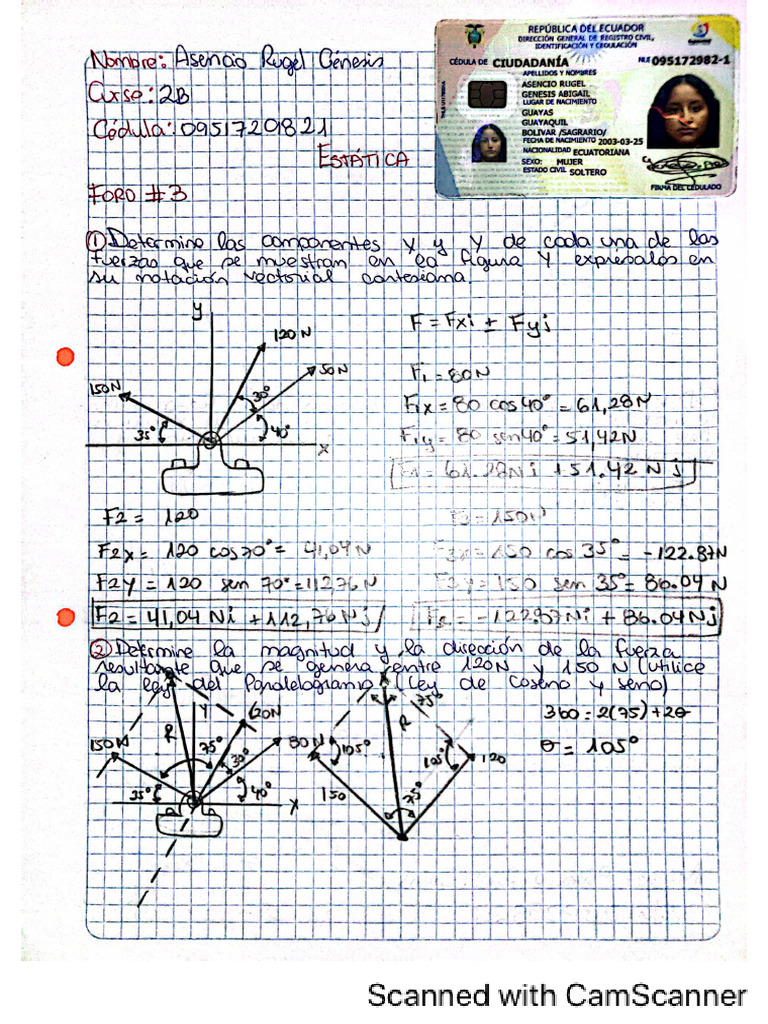 Nombre: Asencio Rugel Génesis
Curso: 2B
Códula: 09517209821
ESTÁTICA
FORO #3
REPÚBLICA DEL ECUADOR
DIRECCIÓN GENERAL DE REGISTRO CIVIL,
IDENTIFICACIÓN Y CEDULACIÓN
CÉDULA DE CIUDADANÍA
Nº 095172982-1
APELLIDOS Y NOMBRES
ASENCIO RUGEL
GENESIS ABIGAIL
LUGAR DE NACIMIENTO
GUAYAS
GUAYAQUIL
BOLIVAR /SAGRARIO/
FECHA DE NACIMIENTO 2003-03-25
NACIONALIDAD ECUATORIANA
SEXO: MUJER
ESTADO CIVIL SOLTERO
FIRMA DEL CEDULADO
① Determine las componentes x y y de cada una de las
fuerzas que se muestran en la figura y expresalos en
su notación vectorial cartesiana.
y
120 N
50N
150N
30°
35°
40°
x
F = Fxi ± Fyj
F1 = 80N
F1x = 80 cos 40° = 61,28N
F1y = 80 sen 40° = 51,42N
F1 = 61.28N i + 51.42 N j
F2 = 120
F2x = 120 cos 70° = 41,04 N
F2y = 120 sen 70° = 112,76N
F2 = 41,04 Ni + 112,76 Nj
F3 = 150N
F3x = 150 cos 35° = -122.87N
F2y = 150 sen 35° = 86.04 N
= -122.87Ni + 86.04 Nj
② Determine la magnitud y la dirección de la fuerza
resultante que se genera entre 120N y 150 N (utilice
la ley del Paralelogramo (Ley de coseno y seno)
Y
120N
150N
R
75°
80N
30°
35°
40°
x
75°
R
105°
105°
120
150
75°
360 = 2(75) + 2θ
θ = 105°
Scanned with CamScanner